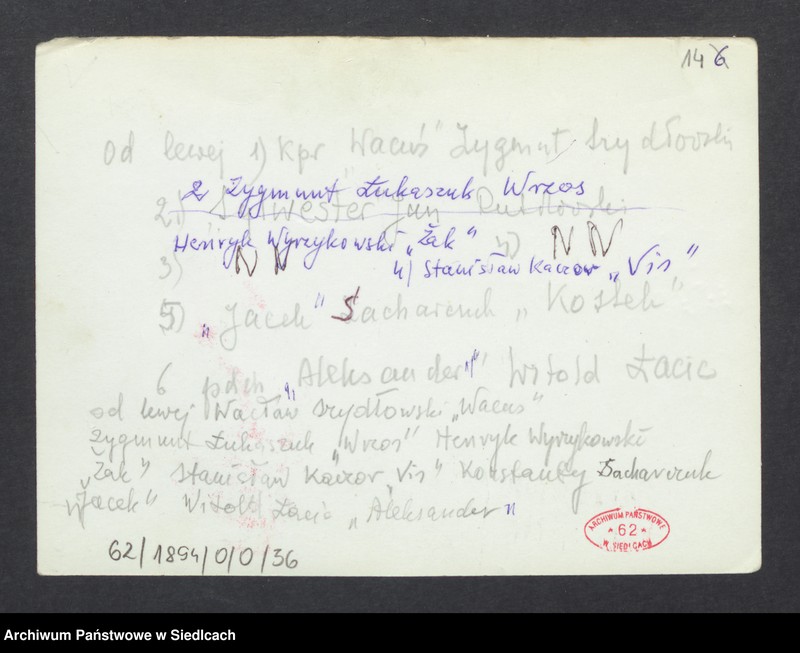 14 6
od lewej 1) kpr "Wacuś" Zygmunt Szydłowski
2 Zygmunt Łukaszuk Wrzos
2) Sylwester Jan Rutkowski
Henryk Wyrzykowski „Żak"
3) NN 4) NN
4) Stanisław Kaczor „Vis"
5) „Jacek" Sacharczuk „Kostek"
6 pdch „Aleksander" Witold Łacic
od lewej Wacław Szydłowski „Wacuś"
Zygmunt Łukaszuk „Wrzos" Henryk Wyrzykowski
„Żak" Stanisław Kaczor „Vis" Konstanty Sacharczuk
„Jacek" Witold Łacic „Aleksander"
62/1894/0/0/36
ARCHIWUM PAŃSTWOWE
* 62 *
W SIEDLCACH
Archiwum Państwowe w Siedlcach